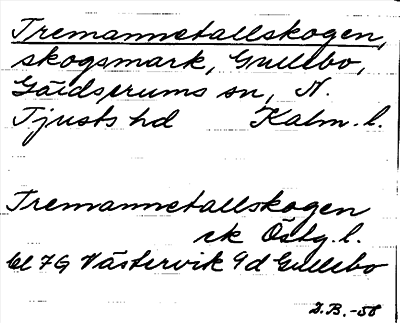 Tremannetallskogen,
skogsmark, Gullebo,
Gärdserums sn, N.
Tjusts hd Kalm. l.
Tremannetallskogen
ek Östg. l.
bl 7G Västervik 9d Gullebo
I.B. -58